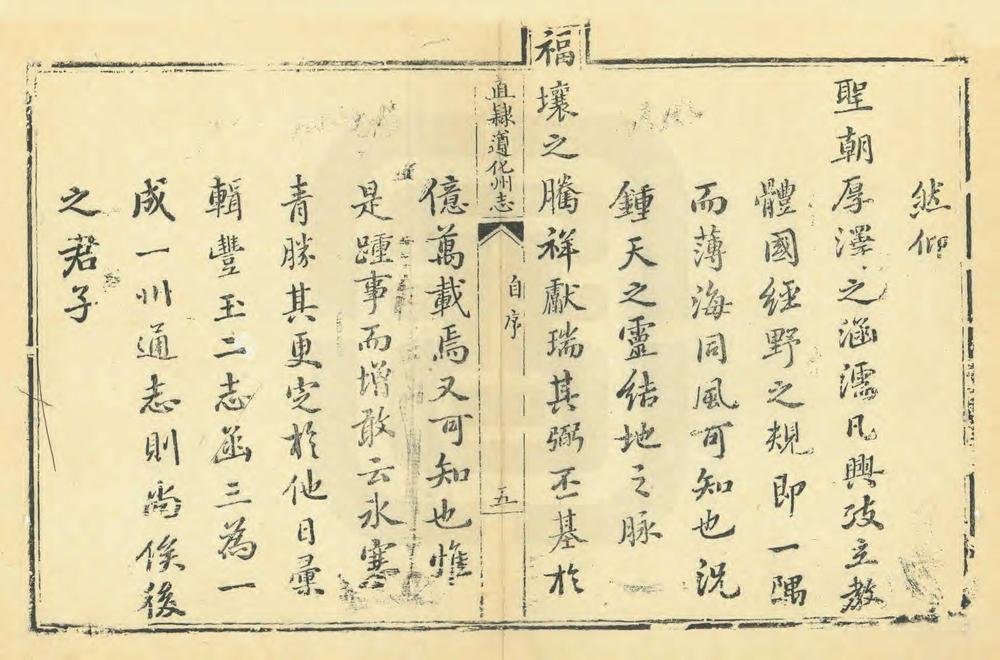 然仰
聖朝厚澤之涵濡凡興孜立教
體國經野之規即一隅
而薄海同風可知也況
鍾天之靈結地之脉
福壤之騰祥獻瑞其弼丕基於
直隸遵化州志
自序
五
億萬載焉又可知也惟
是踵事而增敢云氷寒
青勝其更定於他日彙
輯豐玉二志函三為一
成一州通志則尚俟後
之君子